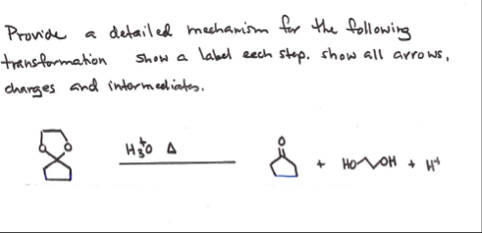 Provide a detailed mechanism for the following
transformation show a label each step. show all arrows,
charges and intermediates.
O O H₃⁺O Δ O + HO OH + H⁺